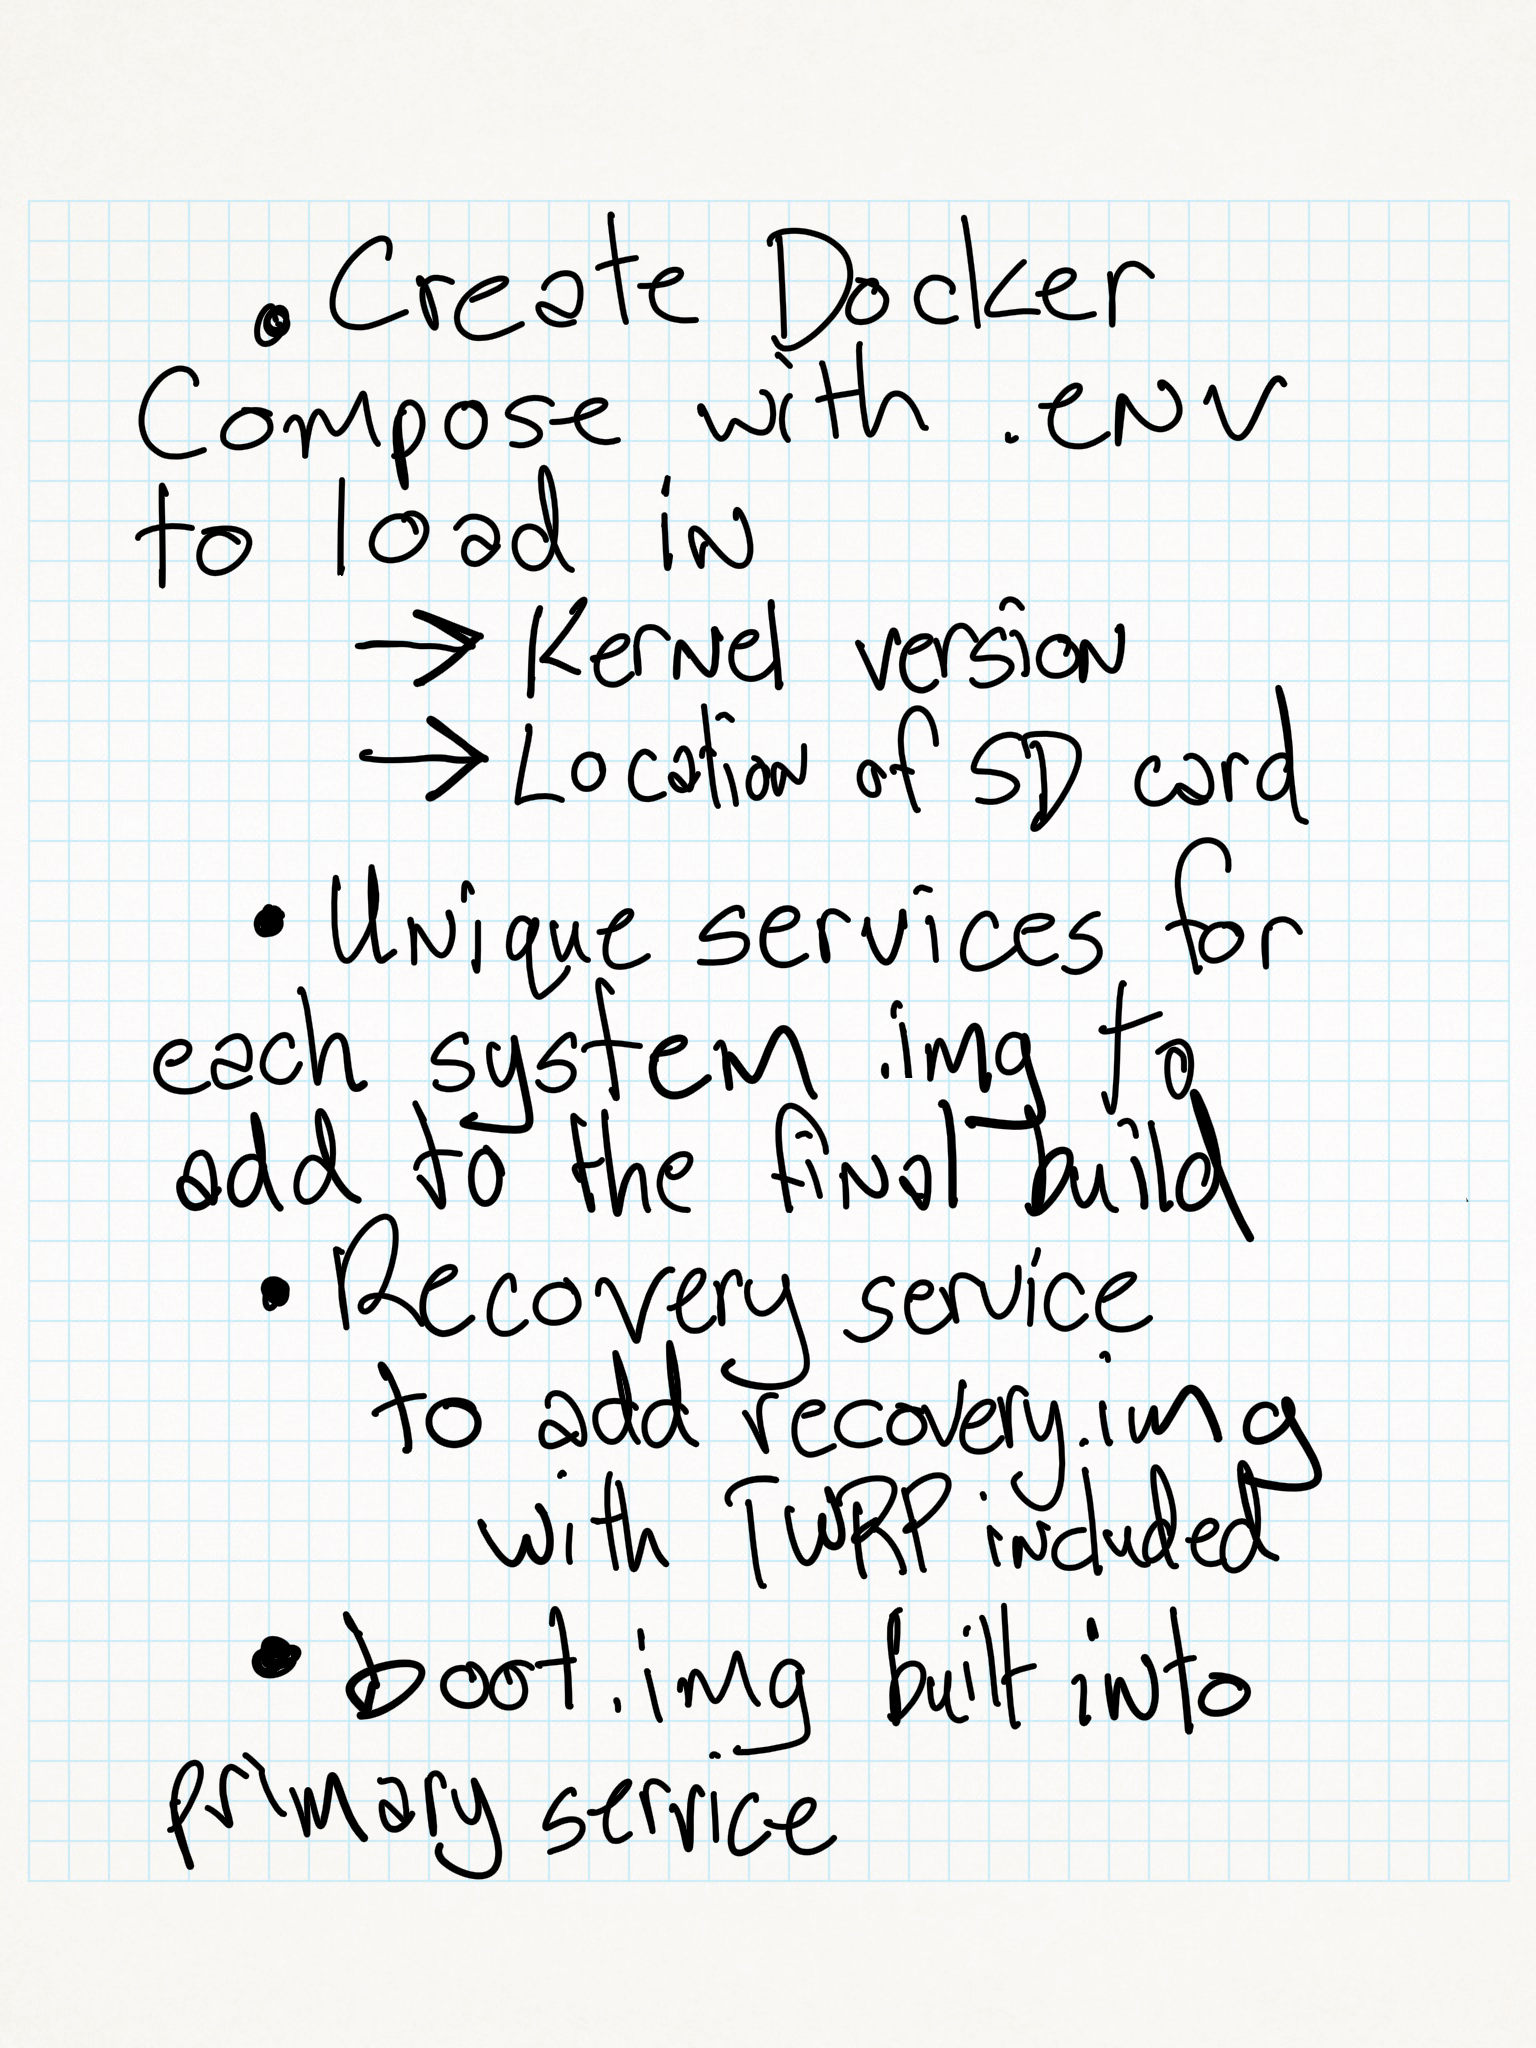 • Create Docker
Compose with .env
to load in
→ Kernel version
→ Location of SD card
• Unique services for
each system .img to
add to the final build
• Recovery service
to add recovery.img
with TWRP included
• boot.img built into
primary service